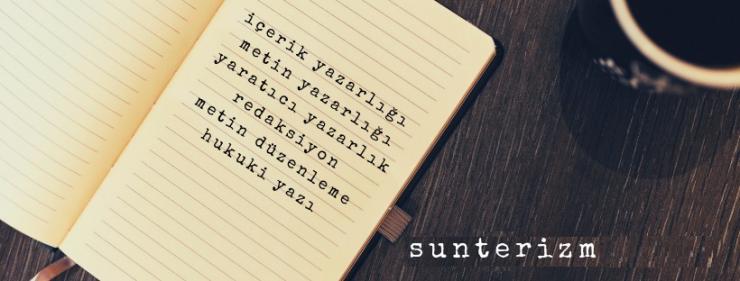 içerik yazarlığı
metin yazarlığı
yaratıcı yazarlık
redaksiyon
metin düzenleme
hukuki yazı
sunterizm